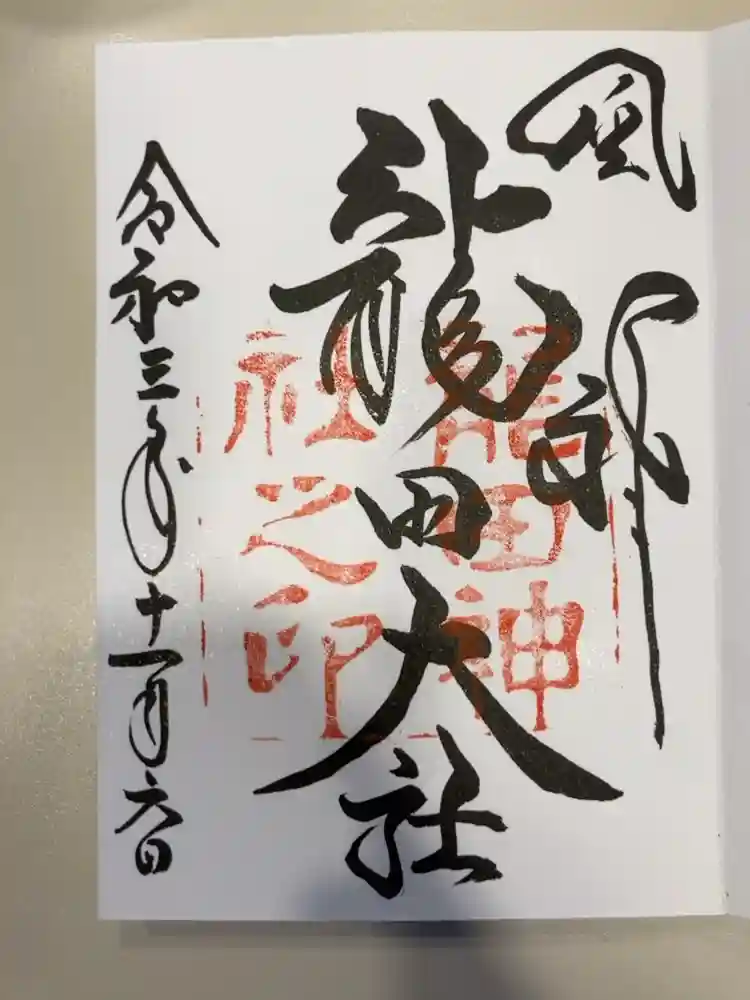 風神
龍田大社
龍田神
社之印
令和三年十一月六日